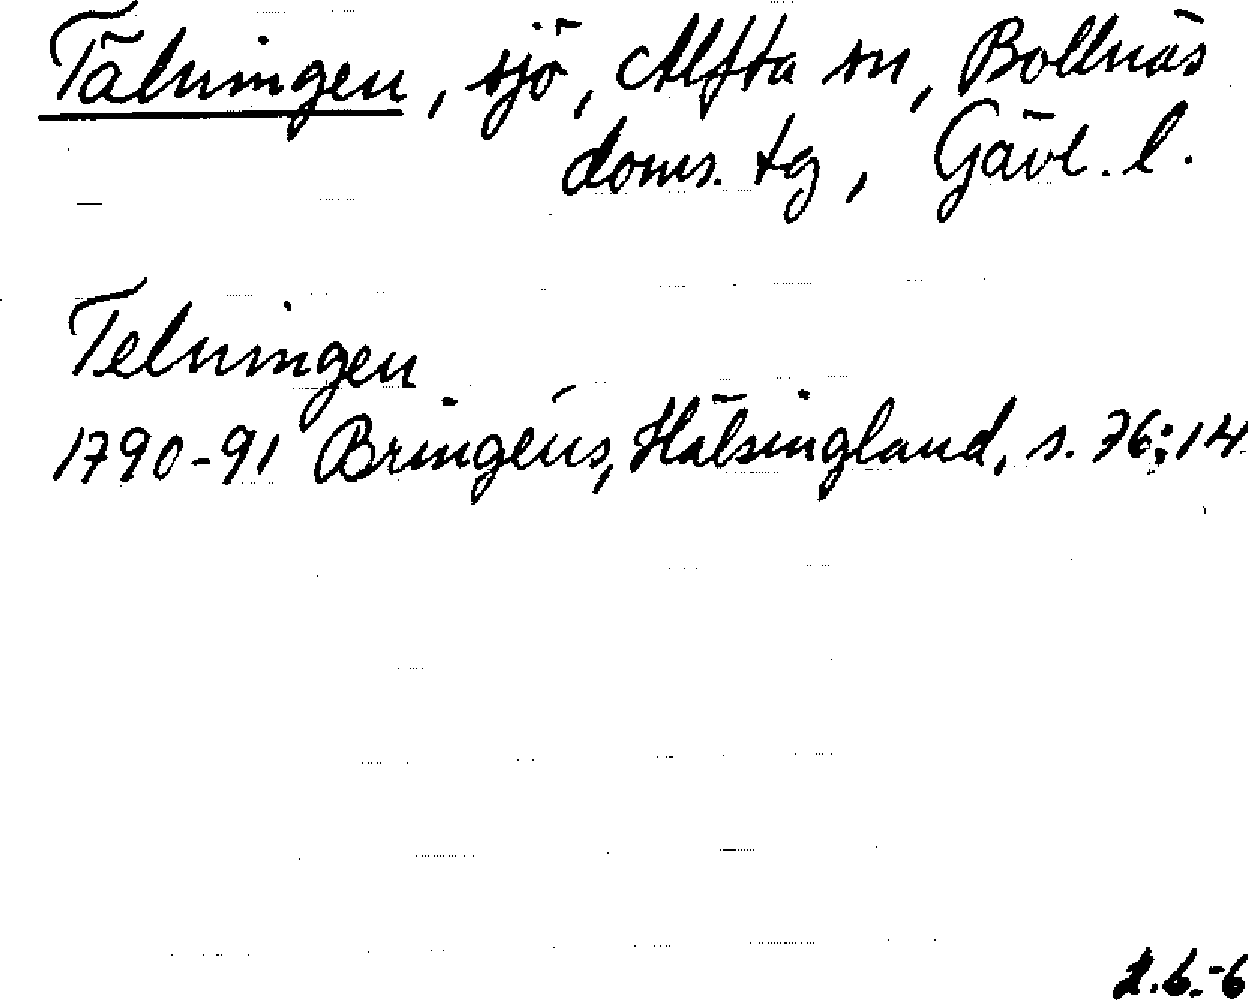 Tälningen, sjö, Alfta sn, Bollnäs
doms. tg, Gävl. l.
Telningen
1790-91 Bringéus, Hälsingland, s. 76:14